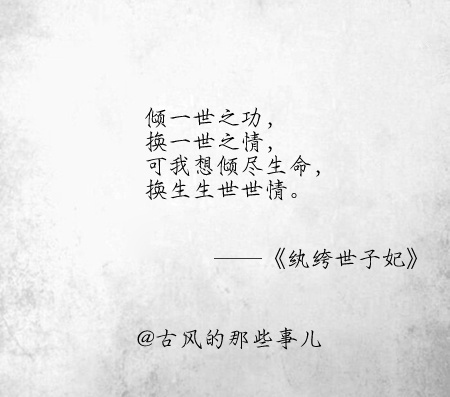 倾一世之功，
换一世之情，
可我想倾尽生命，
换生生世世情。
——《纨绔世子妃》
@古风的那些事儿